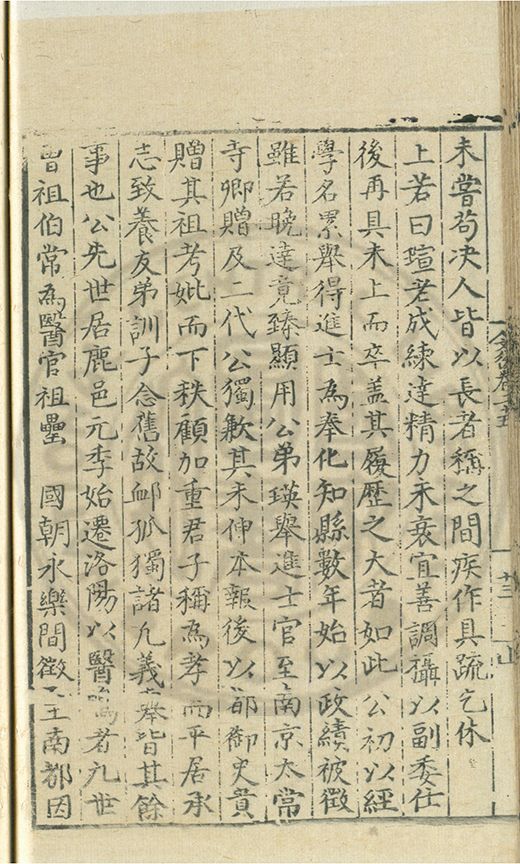 未嘗苟决人皆以長者稱之間疾作具疏乞休
上若曰瑄老成練達精力未衰宜善調攝以副委任
後再具未上而卒盖其履歷之大者如此公初以經
學名累舉得進士為奉化知縣數年始以政績被徵
雖若晚達竟臻顯用公弟瑛舉進士官至南京太常
寺卿贈及二代公獨歉其未伸本報後以都御史貴
贈其祖考妣而下秩顧加重君子稱為孝而平居承
志致養友弟訓子念舊故邮孤獨諸凢義舉皆其餘
事也公先世居麗邑元季始遷洛陽以醫鳴者凢世
曾祖伯常為醫官祖壘 國朝永樂間徵至南都因
十三